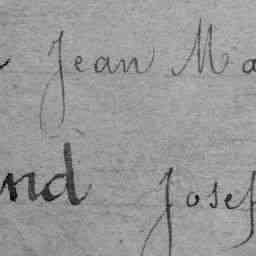 Jean Ma
nd Josef